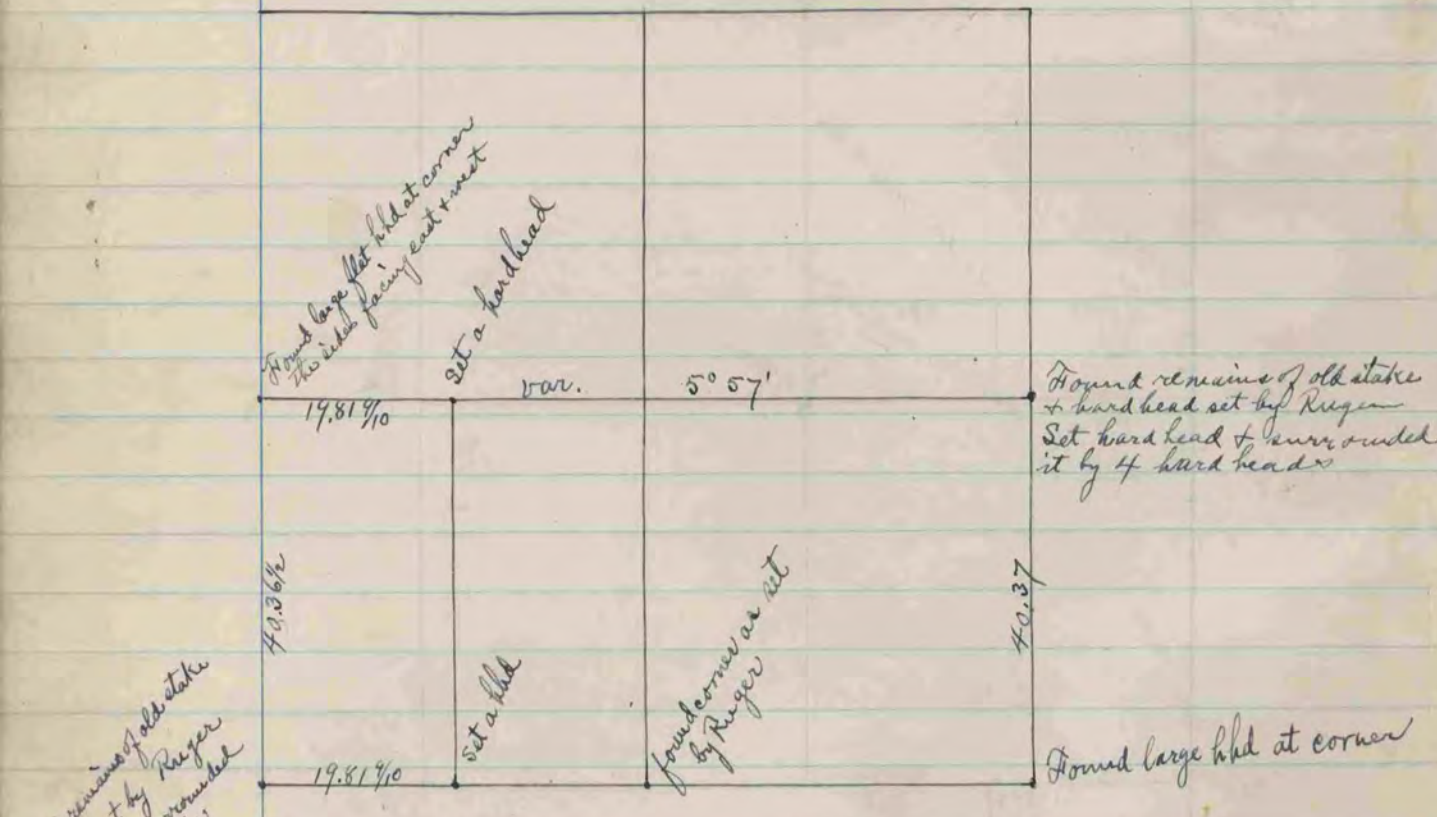 Found large flat hhd at corner
the sides facing east + west
Set a hardhead
var. 5° 57'
19.81 9/10
Found remains of old stake
+ hard head set by Ruger
Set hard head + surrounded
it by 4 hard heads
40.36½
40.37
remains of old stake
by Ruger
Set a hhd
found corner as set
by Ruger
19.81 9/10
Found large hhd at corner